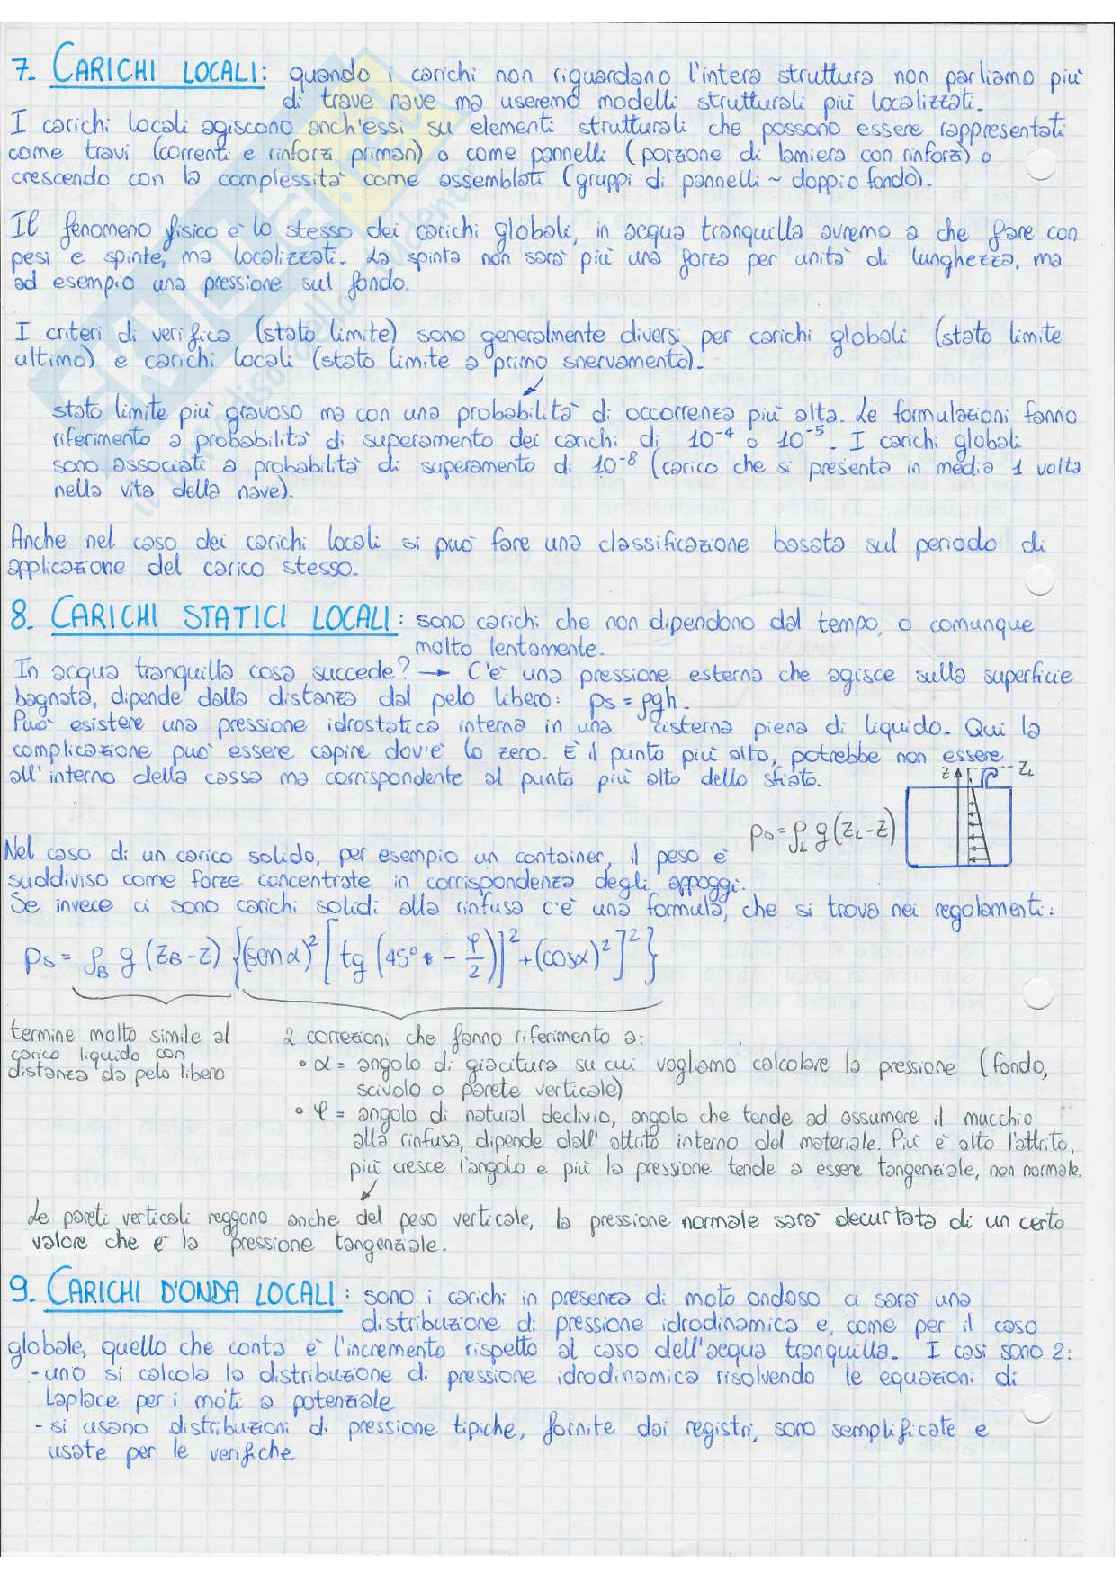 7. CARICHI LOCALI: quando i carichi non riguardano l'intera struttura non parliamo più
di trave nave ma useremo modelli strutturali più localizzati.
I carichi locali agiscono anch'essi su elementi strutturali che possono essere rappresentati
come travi (correnti e rinforzi primari) o come pannelli (porzione di lamiera con rinforzi) o
crescendo con la complessità come assemblati (gruppi di pannelli ~ doppio fondo).
Il fenomeno fisico è lo stesso dei carichi globali, in acqua tranquilla avremo a che fare con
pesi e spinte, ma localizzati. La spinta non sarà più una forza per unità di lunghezza, ma
ad esempio una pressione sul fondo.
I criteri di verifica (stato limite) sono generalmente diversi per carichi globali (stato limite
ultimo) e carichi locali (stato limite a primo snervamento).
stato limite più gravoso ma con una probabilità di occorrenza più alta. Le formulazioni fanno
riferimento a probabilità di superamento dei carichi di 10⁻⁴ o 10⁻⁵. I carichi globali
sono associati a probabilità di superamento di 10⁻⁸ (carico che si presenta in media 1 volta
nella vita della nave).
Anche nel caso dei carichi locali si può fare una classificazione basata sul periodo di
applicazione del carico stesso.
8. CARICHI STATICI LOCALI: sono carichi che non dipendono dal tempo, o comunque
molto lentamente.
In acqua tranquilla cosa succede? → C'è una pressione esterna che agisce sulla superficie
bagnata, dipende dalla distanza dal pelo libero: ps = ρgh.
Può esistere una pressione idrostatica interna in una cisterna piena di liquido. Qui la
complicazione può essere capire dov'è lo zero. È il punto più alto, potrebbe non essere
all'interno della cassa ma corrispondente al punto più alto dello sfiato.
z ZL
ps = ρL g (ZL - Z)
Nel caso di un carico solido, per esempio un container, il peso è
suddiviso come forze concentrate in corrispondenza degli appoggi.
Se invece ci sono carichi solidi alla rinfusa c'è una formula, che si trova nei regolamenti:
ps = ρB g (ZB - Z) {(sen α)² [tg (45° - φ/2)]² + (cos α)²]²}
termine molto simile al
carico liquido con
distanza da pelo libero
2 correzioni che fanno riferimento a:
° α = angolo di giacitura su cui vogliamo calcolare la pressione (fondo,
scivolo o parete verticale)
° φ = angolo di natural declivio, angolo che tende ad assumere il mucchio
alla rinfusa, dipende dall'attrito interno del materiale. Più è alto l'attrito,
più cresce l'angolo e più la pressione tende a essere tangenziale, non normale.
Le pareti verticali reggono anche del peso verticale, la pressione normale sarà decurtata di un certo
valore che è la pressione tangenziale.
9. CARICHI D'ONDA LOCALI: sono i carichi in presenza di moto ondoso ci sarà una
distribuzione di pressione idrodinamica e, come per il caso
globale, quello che conta è l'incremento rispetto al caso dell'acqua tranquilla. I casi sono 2:
- uno si calcola la distribuzione di pressione idrodinamica risolvendo le equazioni di
Laplace per i moti a potenziale
- si usano distribuzioni di pressione tipiche, fornite dai registri, sono semplificate e
usate per le verifiche